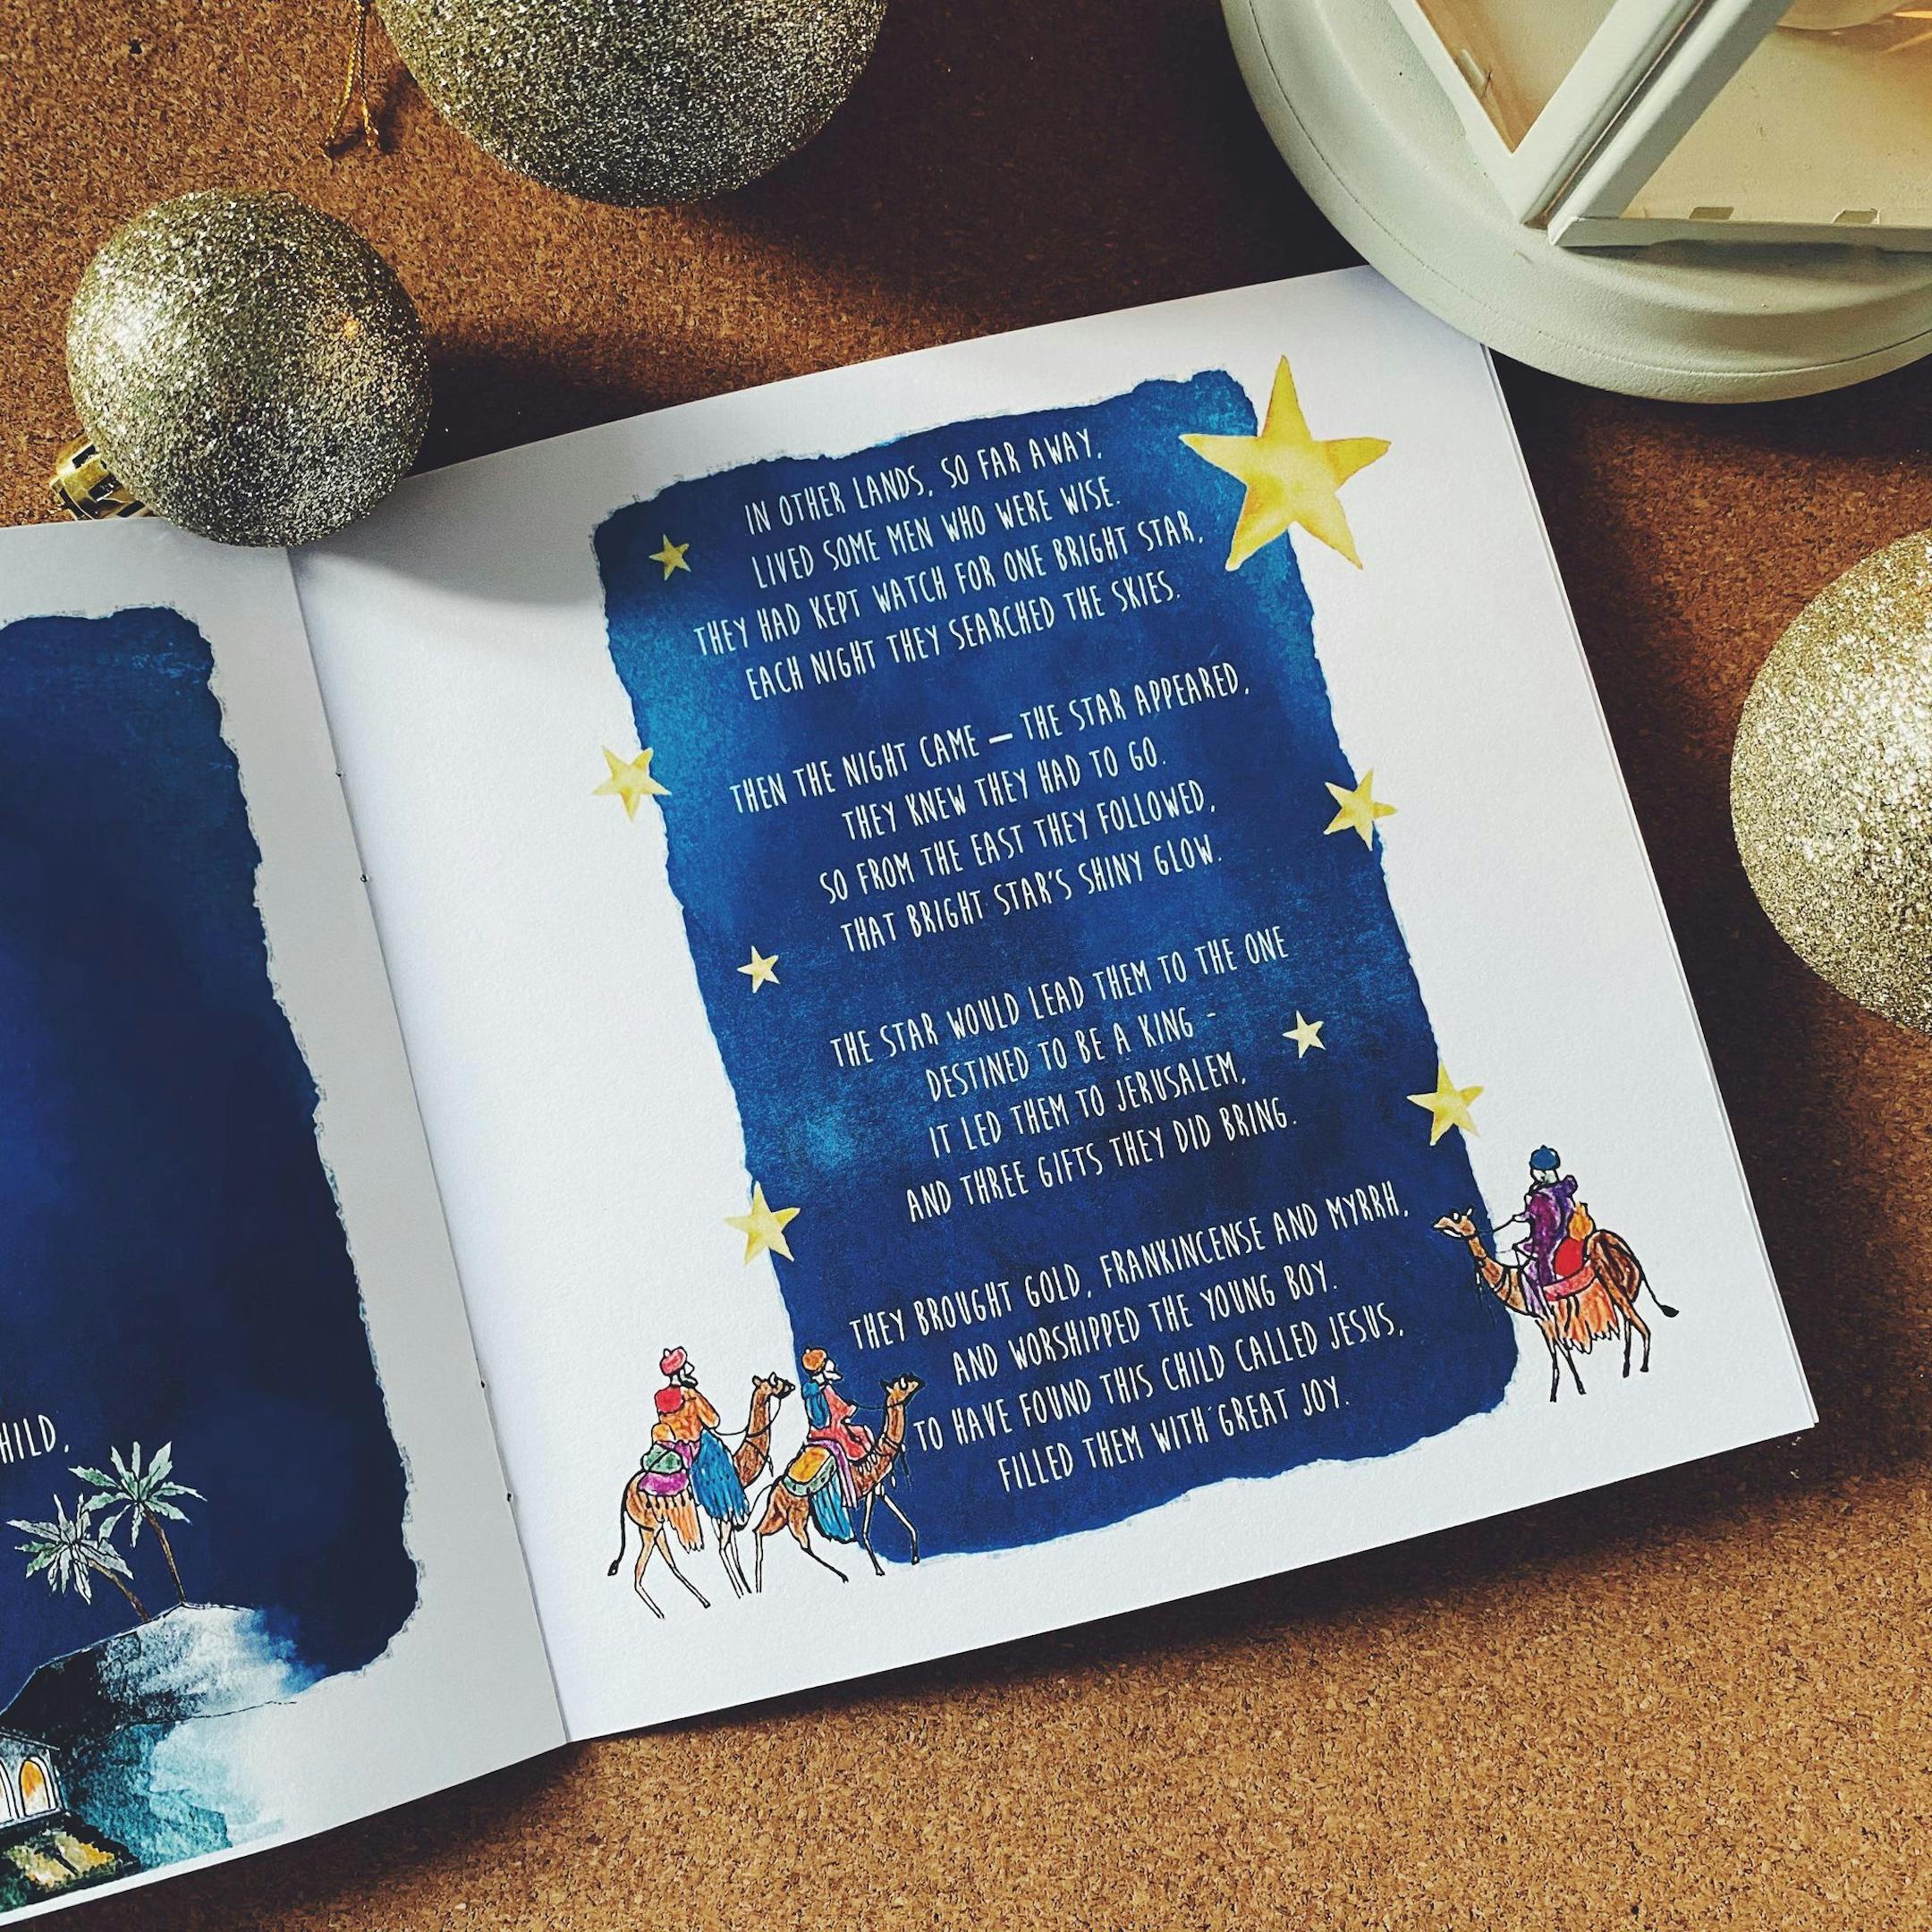 HILD,
IN OTHER LANDS, SO FAR AWAY,
LIVED SOME MEN WHO WERE WISE.
THEY HAD KEPT WATCH FOR ONE BRIGHT STAR,
EACH NIGHT THEY SEARCHED THE SKIES.
THEN THE NIGHT CAME – THE STAR APPEARED,
THEY KNEW THEY HAD TO GO.
SO FROM THE EAST THEY FOLLOWED,
THAT BRIGHT STAR'S SHINY GLOW.
THE STAR WOULD LEAD THEM TO THE ONE
DESTINED TO BE A KING -
IT LED THEM TO JERUSALEM,
AND THREE GIFTS THEY DID BRING.
THEY BROUGHT GOLD, FRANKINCENSE AND MYRRH,
AND WORSHIPPED THE YOUNG BOY.
TO HAVE FOUND THIS CHILD CALLED JESUS,
FILLED THEM WITH GREAT JOY.